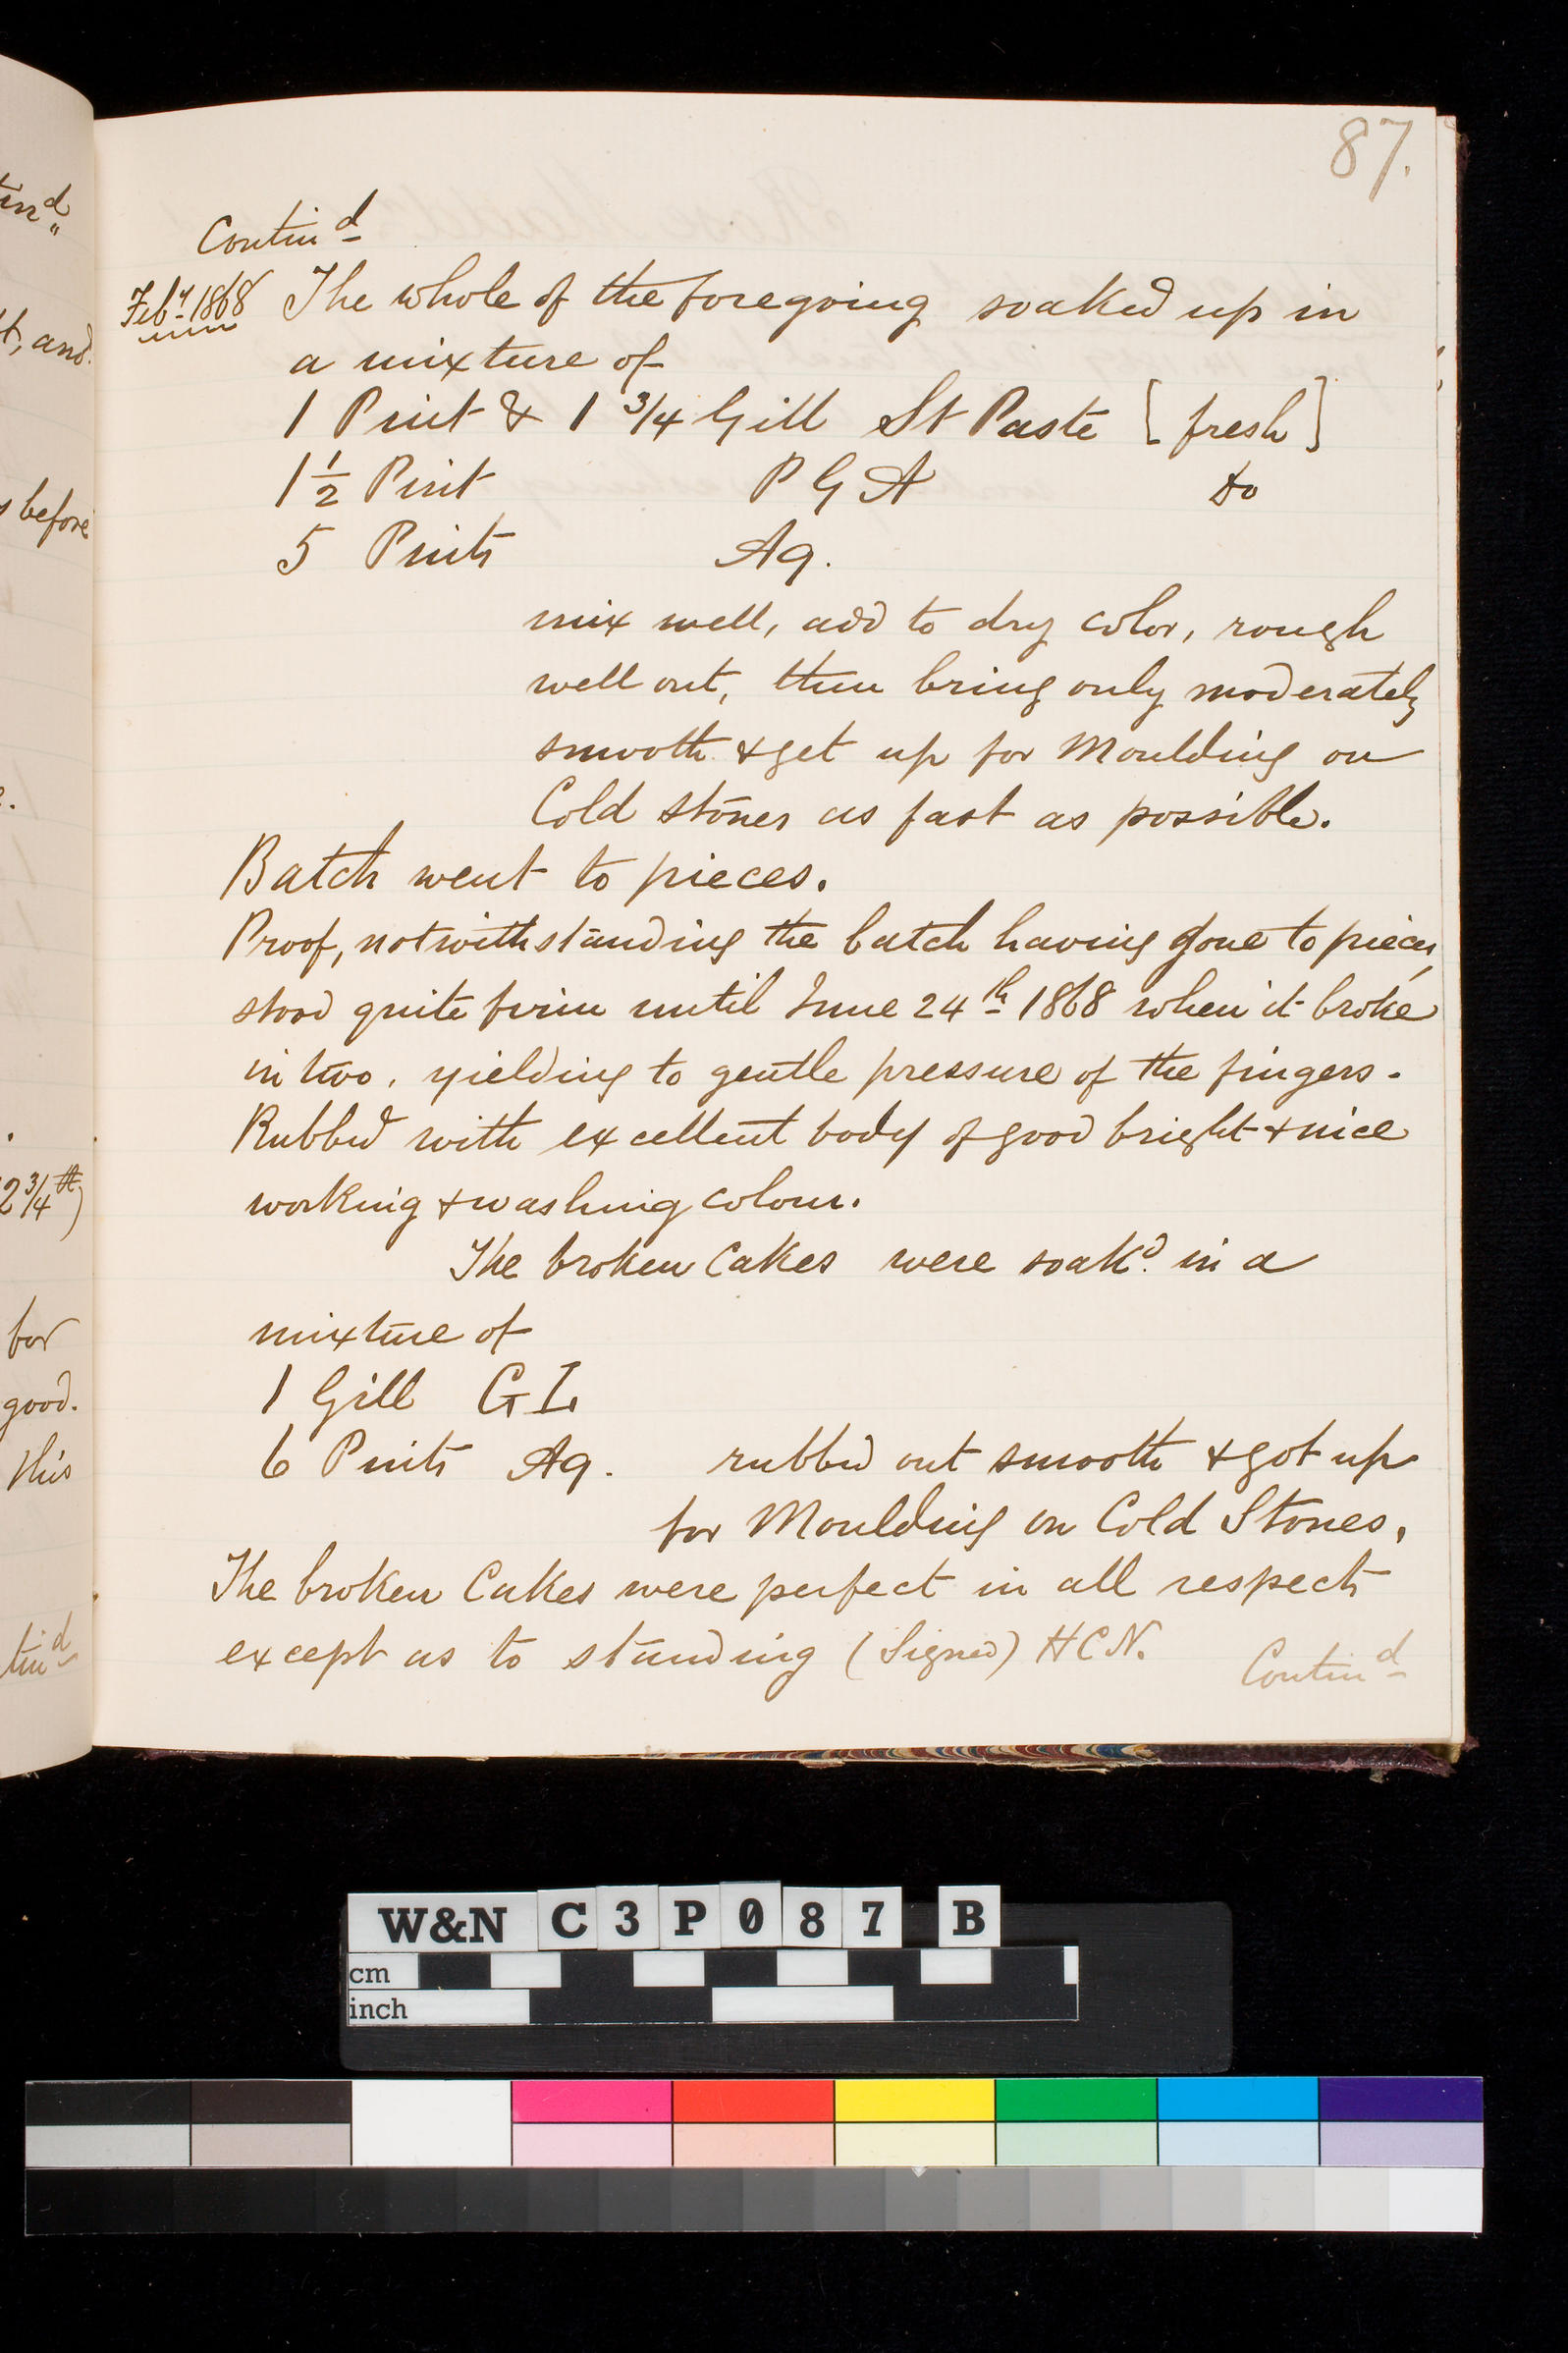 87.
Contind
Feby 1868 The whole of the foregoing soaked up in
a mixture of
1 Pint & 1 3/4 Gill St Paste [fresh]
1 1/2 Pint P G A do
5 Pints Aq.
mix well, add to dry color, rough
well out, then bring only moderately
smooth & get up for Moulding on
Cold stones as fast as possible.
Batch went to pieces.
Proof, notwithstanding the batch having gone to pieces,
stood quite firm until June 24th 1868 when it broke
in two, yielding to gentle pressure of the fingers.
Rubbed with excellent body of good bright & nice
working & washing colour.
The broken Cakes were soakd. in a
mixture of
1 Gill G L
6 Pints Aq. rubbed out smooth & got up
for Moulding on Cold Stones.
The broken Cakes were perfect in all respects
except as to standing (Signed) HCN.
Contind
tind
t, and
s before
2 3/4 lb)
for
good.
this
tind
W&N C3P087 B
cm
inch